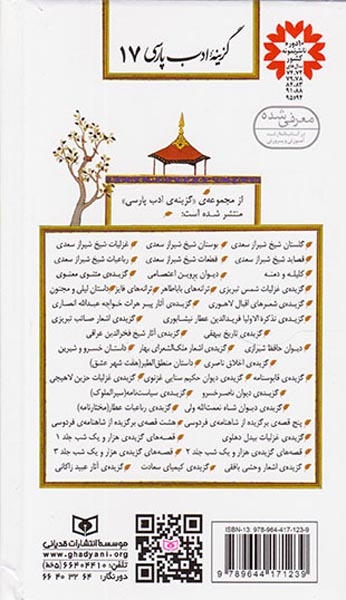 ۱۰ دوره
ناشر نمونه
کشور
سال‌های
۷۴،۷۲
۷۹،۷۸
۸۴،۸۳
۹۱،۸۸
۹۵و۹۴
گزینهٔ ادب پارسی ۱۷
معرفی شده
در کتابنامه رشد
آموزش و پرورش
از مجموعه‌ی «گزینه‌ی ادب پارسی»
منتشر شده است:
گلستان شیخ شیراز سعدی بوستان شیخ شیراز سعدی غزلیات شیخ شیراز سعدی
قصاید شیخ شیراز سعدی قطعات شیخ شیراز سعدی رباعیات شیخ شیراز سعدی
کلیله و دمنه دیوان پروین اعتصامی گزیده‌ی مثنوی معنوی
گزیده‌ی غزلیات شمس تبریزی ترانه‌های باباطاهر ترانه‌های فایز داستان لیلی و مجنون
گزیده‌ی شعرهای اقبال لاهوری گزیده‌ی آثار پیر هرات خواجه عبدالله انصاری
گزیده‌ی تذکرة الاولیا فریدالدین عطار نیشابوری گزیده‌ی اشعار صائب تبریزی
گزیده‌ی تاریخ بیهقی گزیده‌ی آثار شیخ فخرالدین عراقی
دیوان حافظ شیرازی گزیده‌ی اشعار ملک‌الشعرای بهار داستان خسرو و شیرین
گزیده‌ی اخلاق ناصری داستان منطق‌الطیر (هفت شهر عشق)
گزیده‌ی قابوسنامه گزیده‌ی دیوان حکیم سنایی غزنوی گزیده‌ی غزلیات حزین لاهیجی
گزیده‌ی دیوان ناصرخسرو گزیده‌ی سیاست‌نامه (سیرالملوک)
گزیده‌ی دیوان شاه نعمت‌الله ولی گزیده‌ی رباعیات عطار (مختارنامه)
پنج قصه‌ی برگزیده از شاهنامه‌ی فردوسی هشت قصه‌ی برگزیده از شاهنامه‌ی فردوسی
گزیده‌ی غزلیات بیدل دهلوی قصه‌های گزیده‌ی هزار و یک شب جلد ۱
قصه‌های گزیده‌ی هزار و یک شب جلد ۲ قصه‌های گزیده‌ی هزار و یک شب جلد ۳
گزیده‌ی اشعار وحشی بافقی گزیده‌ی کیمیای سعادت گزیده‌ی آثار عبید زاکانی
موسسه انتشارات قدیانی
www.ghadyani.org
تلفن: ۶۶۴۰۴۴۱۰ (۸۶۵)
دورنگار: ۶۶۴۰۳۲۶۴
ISBN-13: 978-964-417-123-9
9 789644 171239